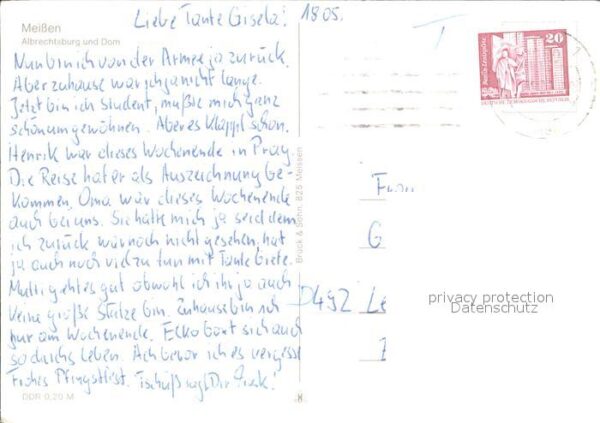 Liebe Tante Gisela! 18.05.
Meißen
Albrechtsburg und Dom
Nun bin ich von der Armee ja zurück.
Aber zuhause war ich ja nicht lange.
Jetzt bin ich Student, mußte mich ganz
schön umgewöhnen. Aber es klappt schon.
Henrik war dieses Wochenende in Prag.
Die Reise hat er als Auszeichnung be-
kommen. Oma war dieses Wochenende
auch bei uns. Sie hatte mich ja seid dem
ich zurück war noch nicht gesehen, hat
ja auch noch viel zu tun mit Tante Grete.
Mutti geht es gut obwohl ich ihr ja auch
keine große Stütze bin. Zuhause bin ich
nur am Wochenende. Ecko boxt sich auch
so durchs Leben. Ach bevor ich es vergesse
Frohes Pfingstfest. Tschüß sagt Dir
DDR 0,20 M
Brück & Sohn, 825 Meissen
20
DEUTSCHE DEMOKRATISCHE REPUBLIK
Frau
G
Le
privacy protection
Datenschutz